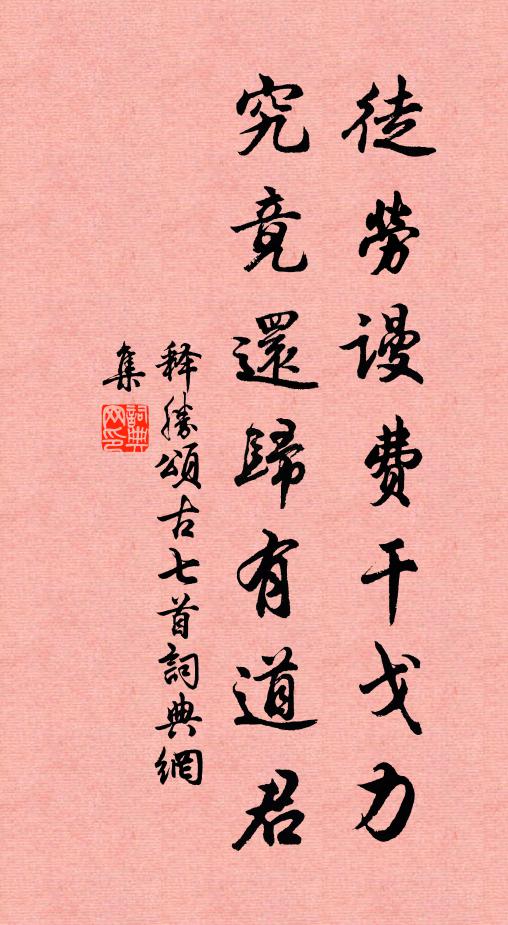 徒勞謾費干戈力
究竟還歸有道君
释勝頌古七首詞典網
集
詞典網印